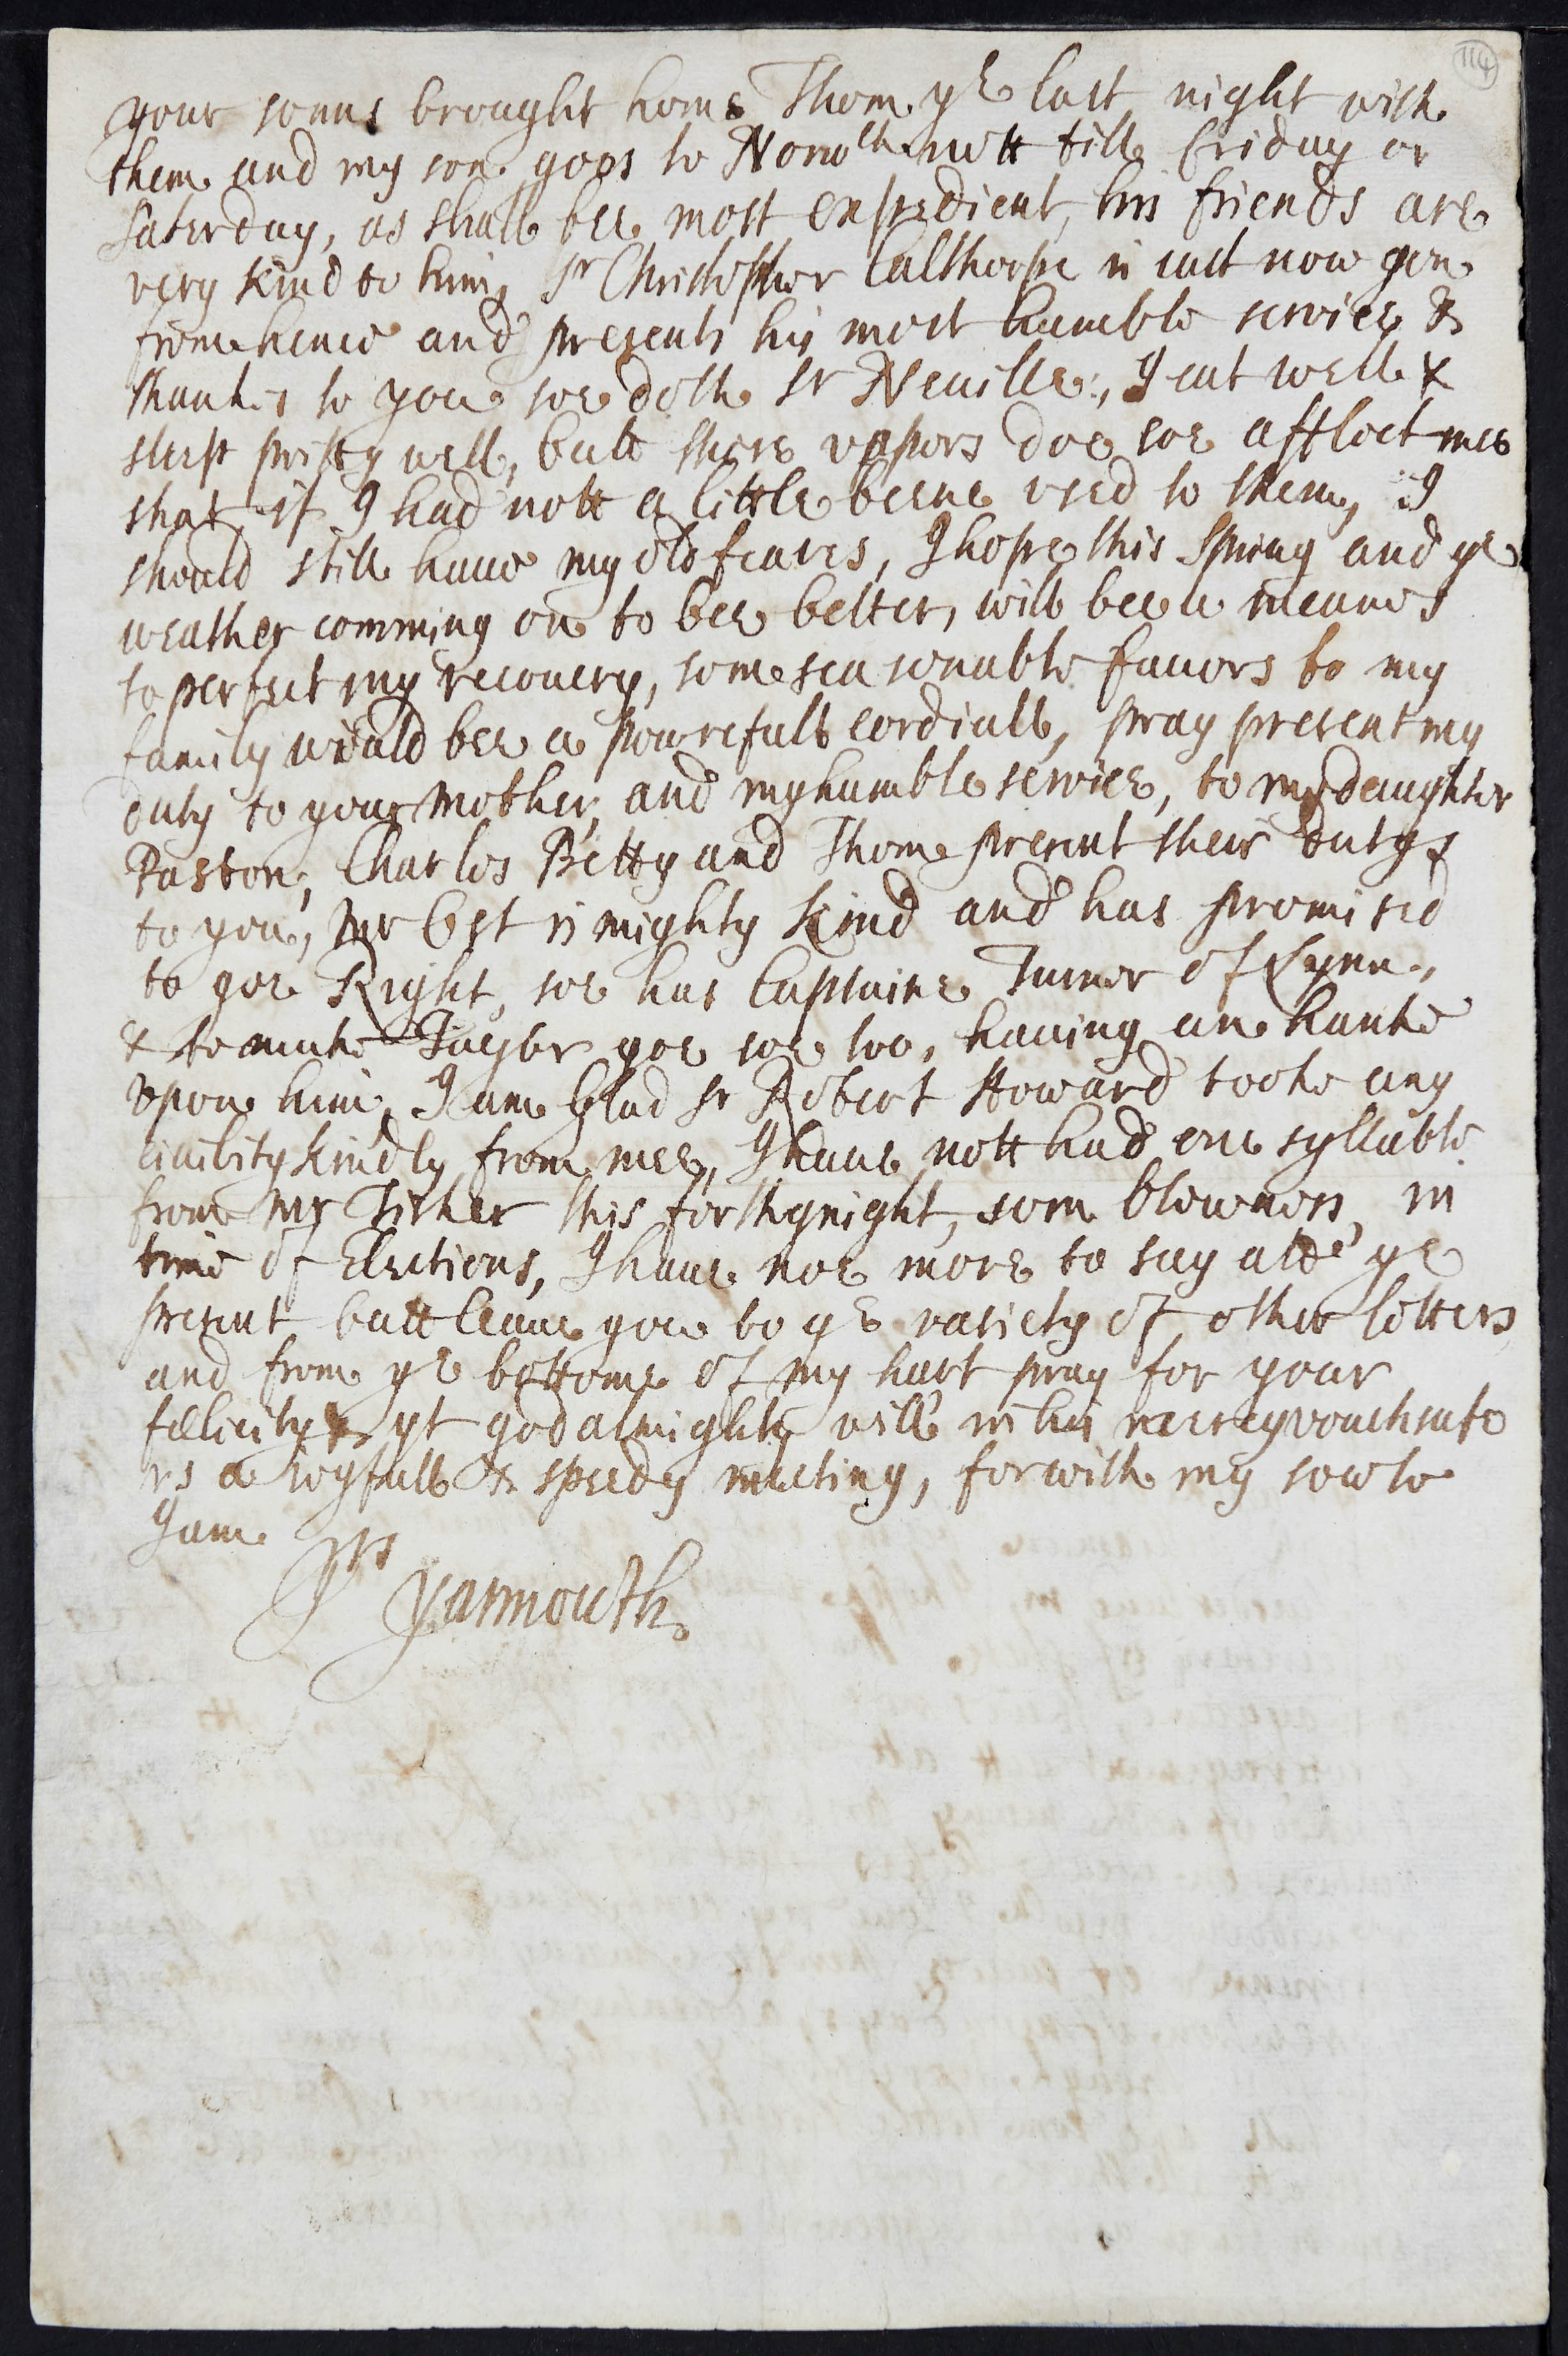 114
your sonns brought home Thom. ye last night with
them and my son goes to Norwch nott till friday or
Saterday, as shall bee most expedient, his friends are
very kind to him, Sr Christopher Calthorpe is iust now gon
from hence and presents his most humble service &
thankes to you soe doth Sr Neuille, I eat well &
sleep pritty well, butt these vapors doe soe afflect mee
that if I had nott a little beene vsed to them, I
should still haue my old feares, I hope this Spring and ye
weather comming on to bee better, will bee a meanes
to perfect my recouery, some seasonable fauors to my
family would bee a powrefull cordiall, pray present my
duty to your mother, and my humble service, to my daughter
Paston, Charles Betty and Thome present their dutys
to you, mr est is mighty kind and has promised
to goe Right, soe has Captaine Turner of Lynn,
& to make Taylor goe soe too, hauing an hanke
vpon him, I am Glad Sr Robert Howard tooke any
ciuility kindly from mee, I haue nott had one syllable
from mr Fisher this forthynight, som blowners, in
time of Elections, I haue noe more to say att ye
present butt leaue you to ye variety of other letters
and from ye bottome of my hart pray for your
felicity & yt god almighty will in his mercy vouchsafe
vs a ioyfull & speedy meeting, for with my sowle
I am
Yrs
Yarmouth